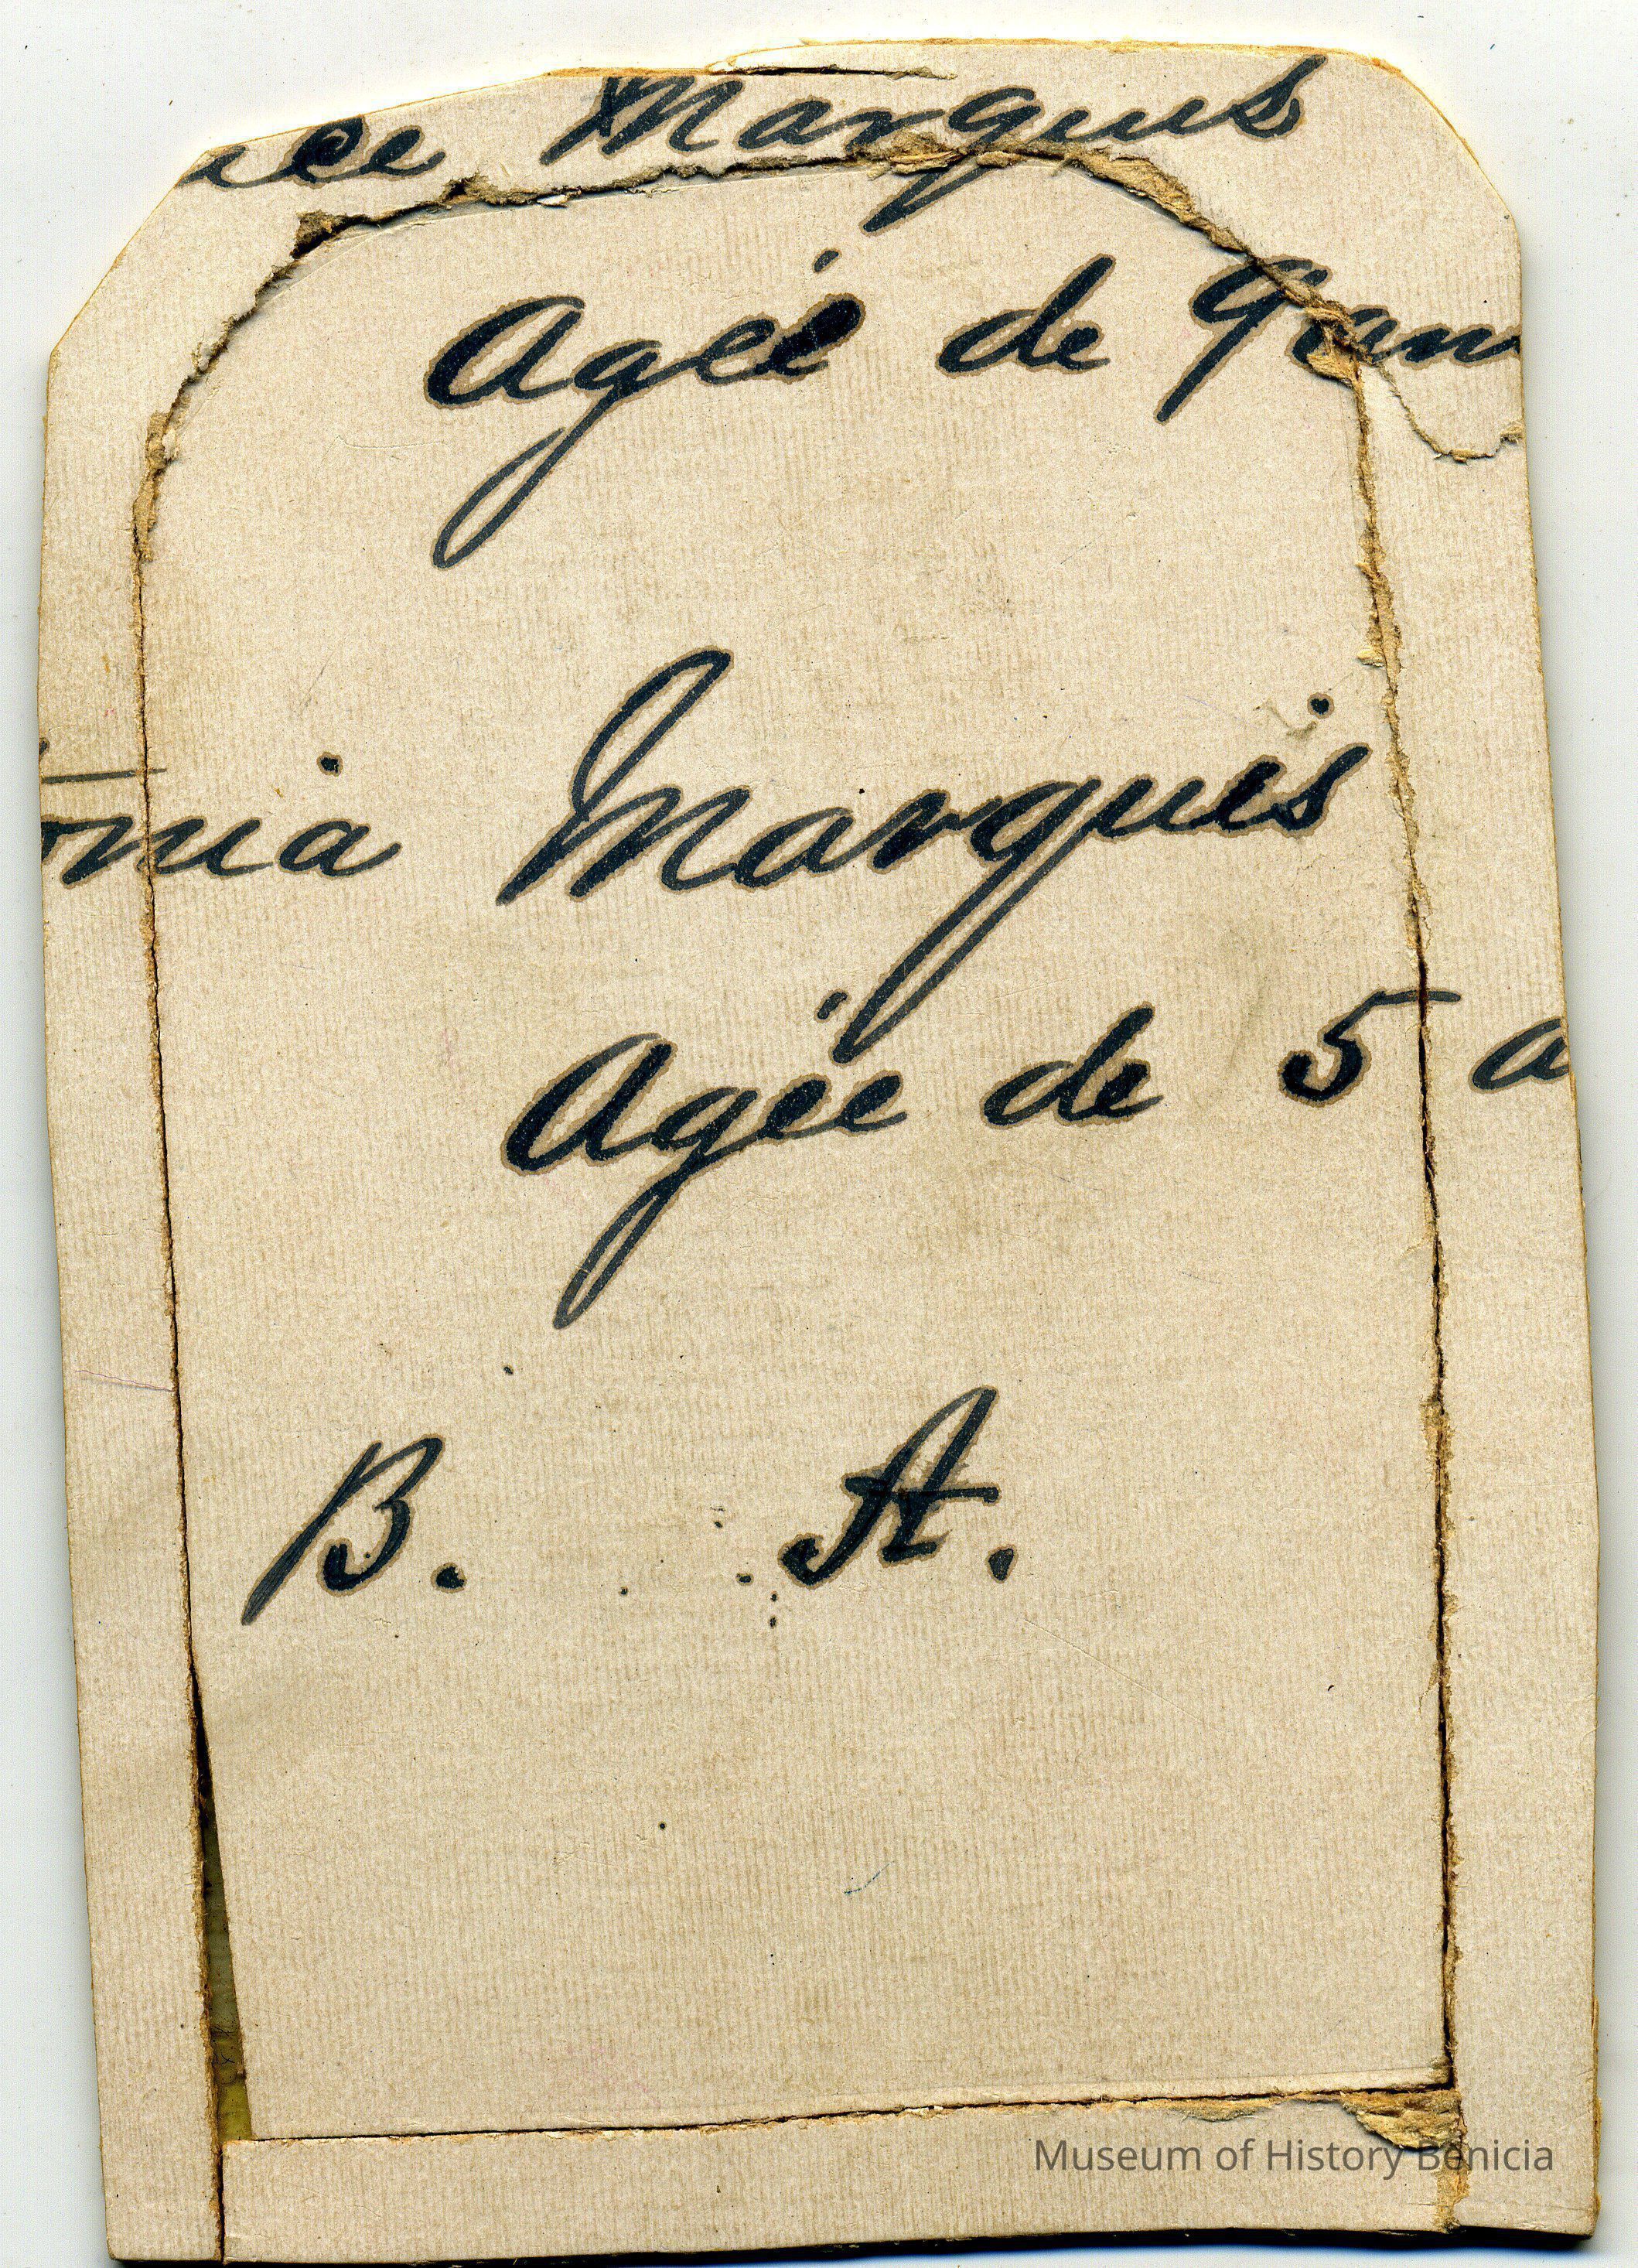 ice Marquis
Agéé de Quan
tonia Marquis
Agée de 5 a
B. A.
Museum of History Benicia